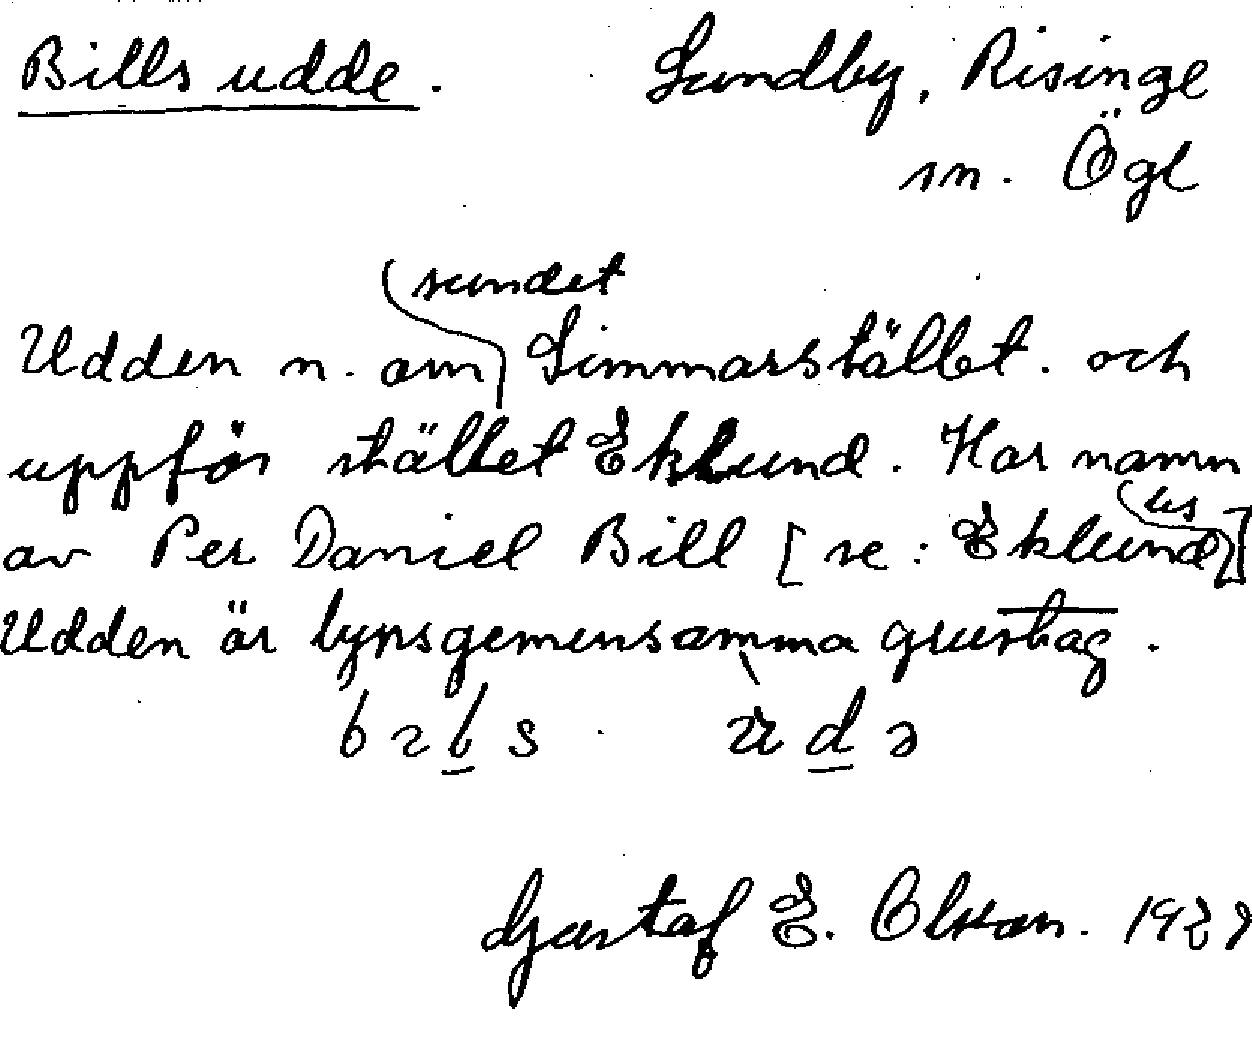 Bills udde. Sundby, Risinge
sn. Ögl
sundet
Udden n. om Simmarstället. och
uppför stället Eklund. Har namn
av Per Daniel Bill [se: Eklunds]
Udden är bynsgemensamma grustag.
Gustaf E. Olsson. 1929